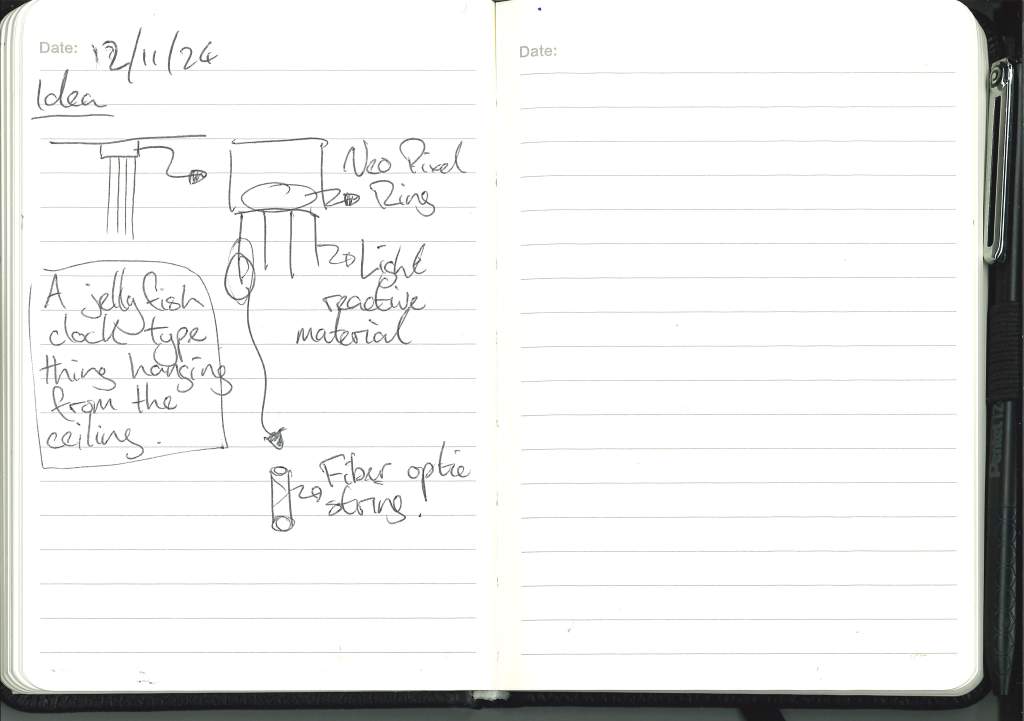 Date: 12/11/24
Idea
Neo Pixel
Ring
Light
reactive
material
A jellyfish
clock type
thing hanging
from the
ceiling.
Fiber optic
string!
Date:
Pentel